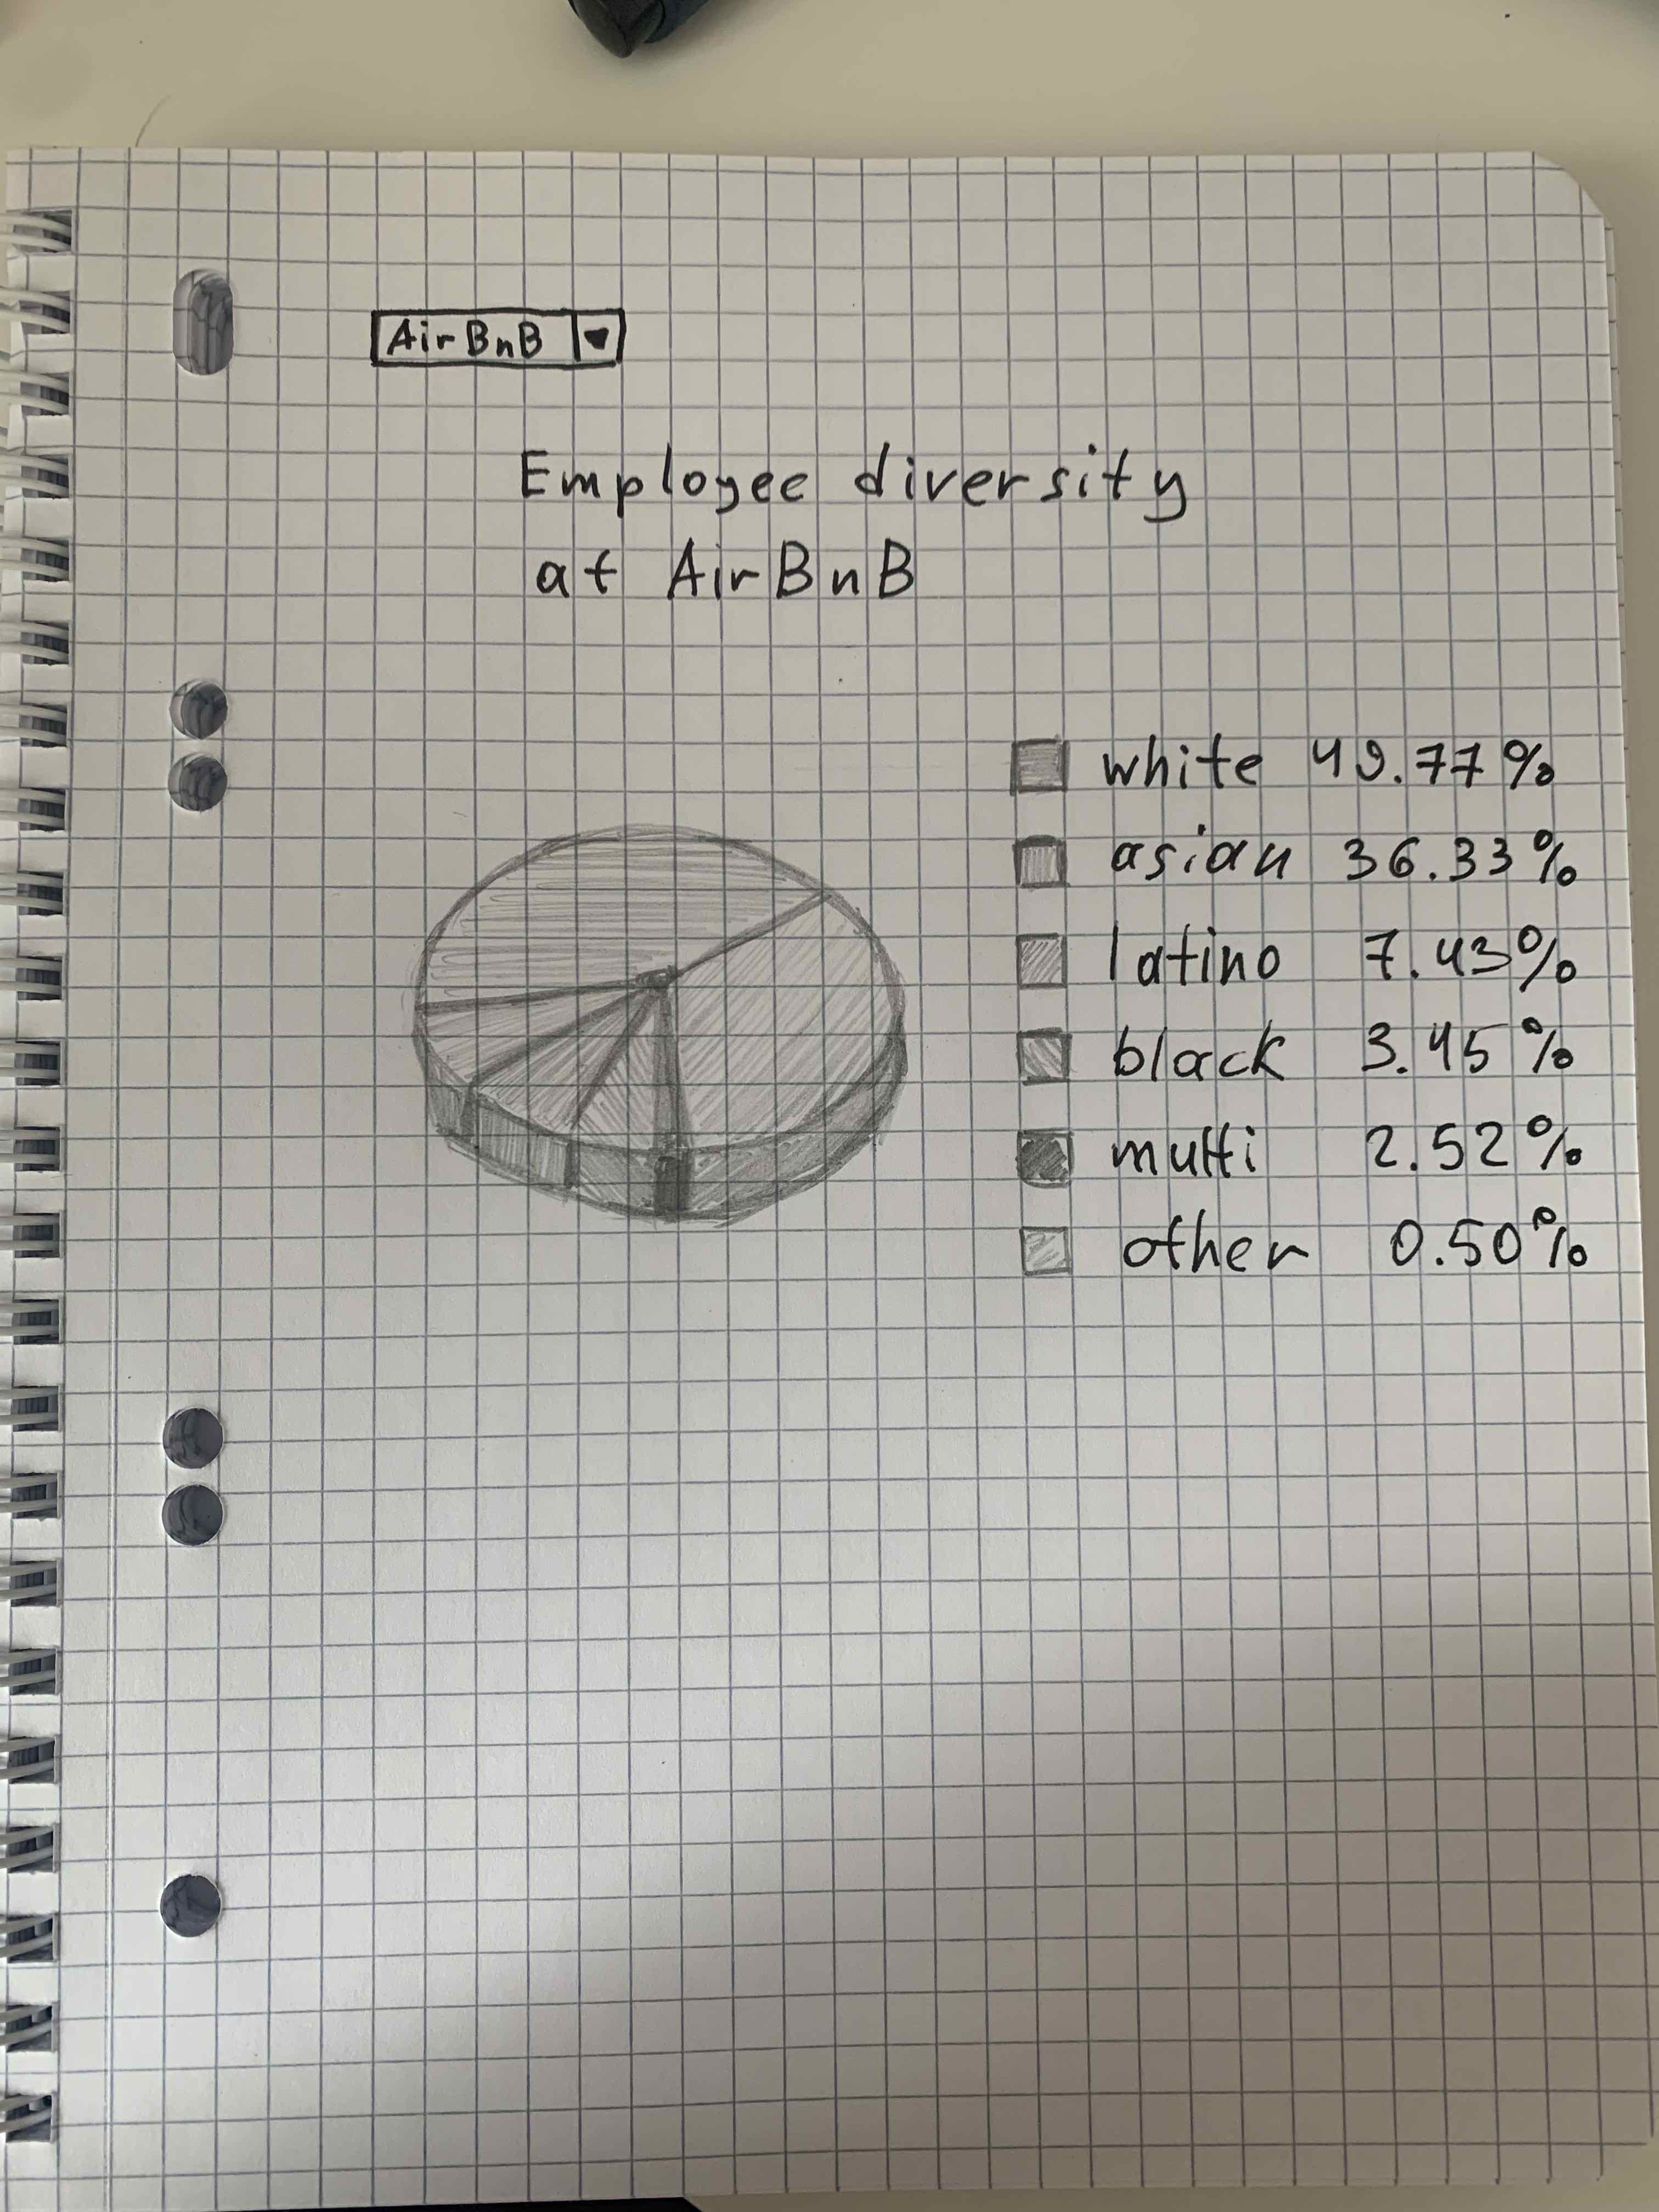 AirBnB
Employee diversity
at AirBnB
white 49.77%
asian 36.33%
latino 7.43%
black 3.45%
multi 2.52%
other 0.50%